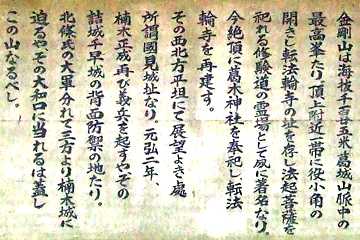 金剛山は海抜千一百廿五米葛城山脈中の
最高峯たり。頂上附近一帯に役小角の
開きし転法輪寺の址を存し法起菩薩を
祀れる修験道の霊場として夙に著名なり。
今絶頂に葛木神社を奉祀し転法
輪寺を再建す。
その西北方平坦にて展望よき處
所謂國見城址なり。元弘二年、
楠木正成再び義兵を起すやその
詰城千早城の背面防禦の地たり。
北條氏の大軍分れて三方より楠木城に
迫るやその大和口に当れるは蓋し
この山なるべし。